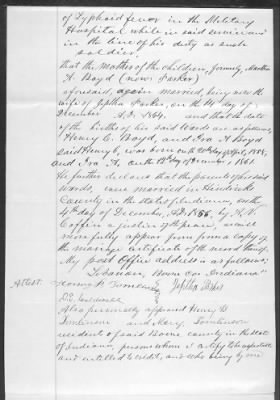 of Typhoid fever in the Military
Hospital while in said service and
in the line of his duty as such
soldier,
that the mother of the children, formerly, Martha
A. Boyd (now Parker)
aforesaid, again married, being now the
wife of Jeptha Parker, on the 14 day of
December A.D. 1864. and that the date
of the births of his said Wards are as follows,
Henry C. Boyd, and Ira A. Boyd
said Henry C, was born on the day of April, 1858,
and Ira A. on the 12th day of December, 1861
He further declares that the parents of his said
wards, were married in Hendricks
County in the State of Indiana, on the
4th day of December, A.D. 1856, by
Coffin a Justice of the peace, as will
more fully appear from a copy of
the marriage certificate of the record thereof.
My post Office address is as follows;
Lebanon, Boone Co. Indiana"
Attest Henry Tomlinson
Jeptha Parker
Also personally appeared Henry
Tomlinson and Mary Tomlinson
residents of said Boone county in the State
of Indiana, persons whom I certify to be respectable
and entitled to credit, and who being by me